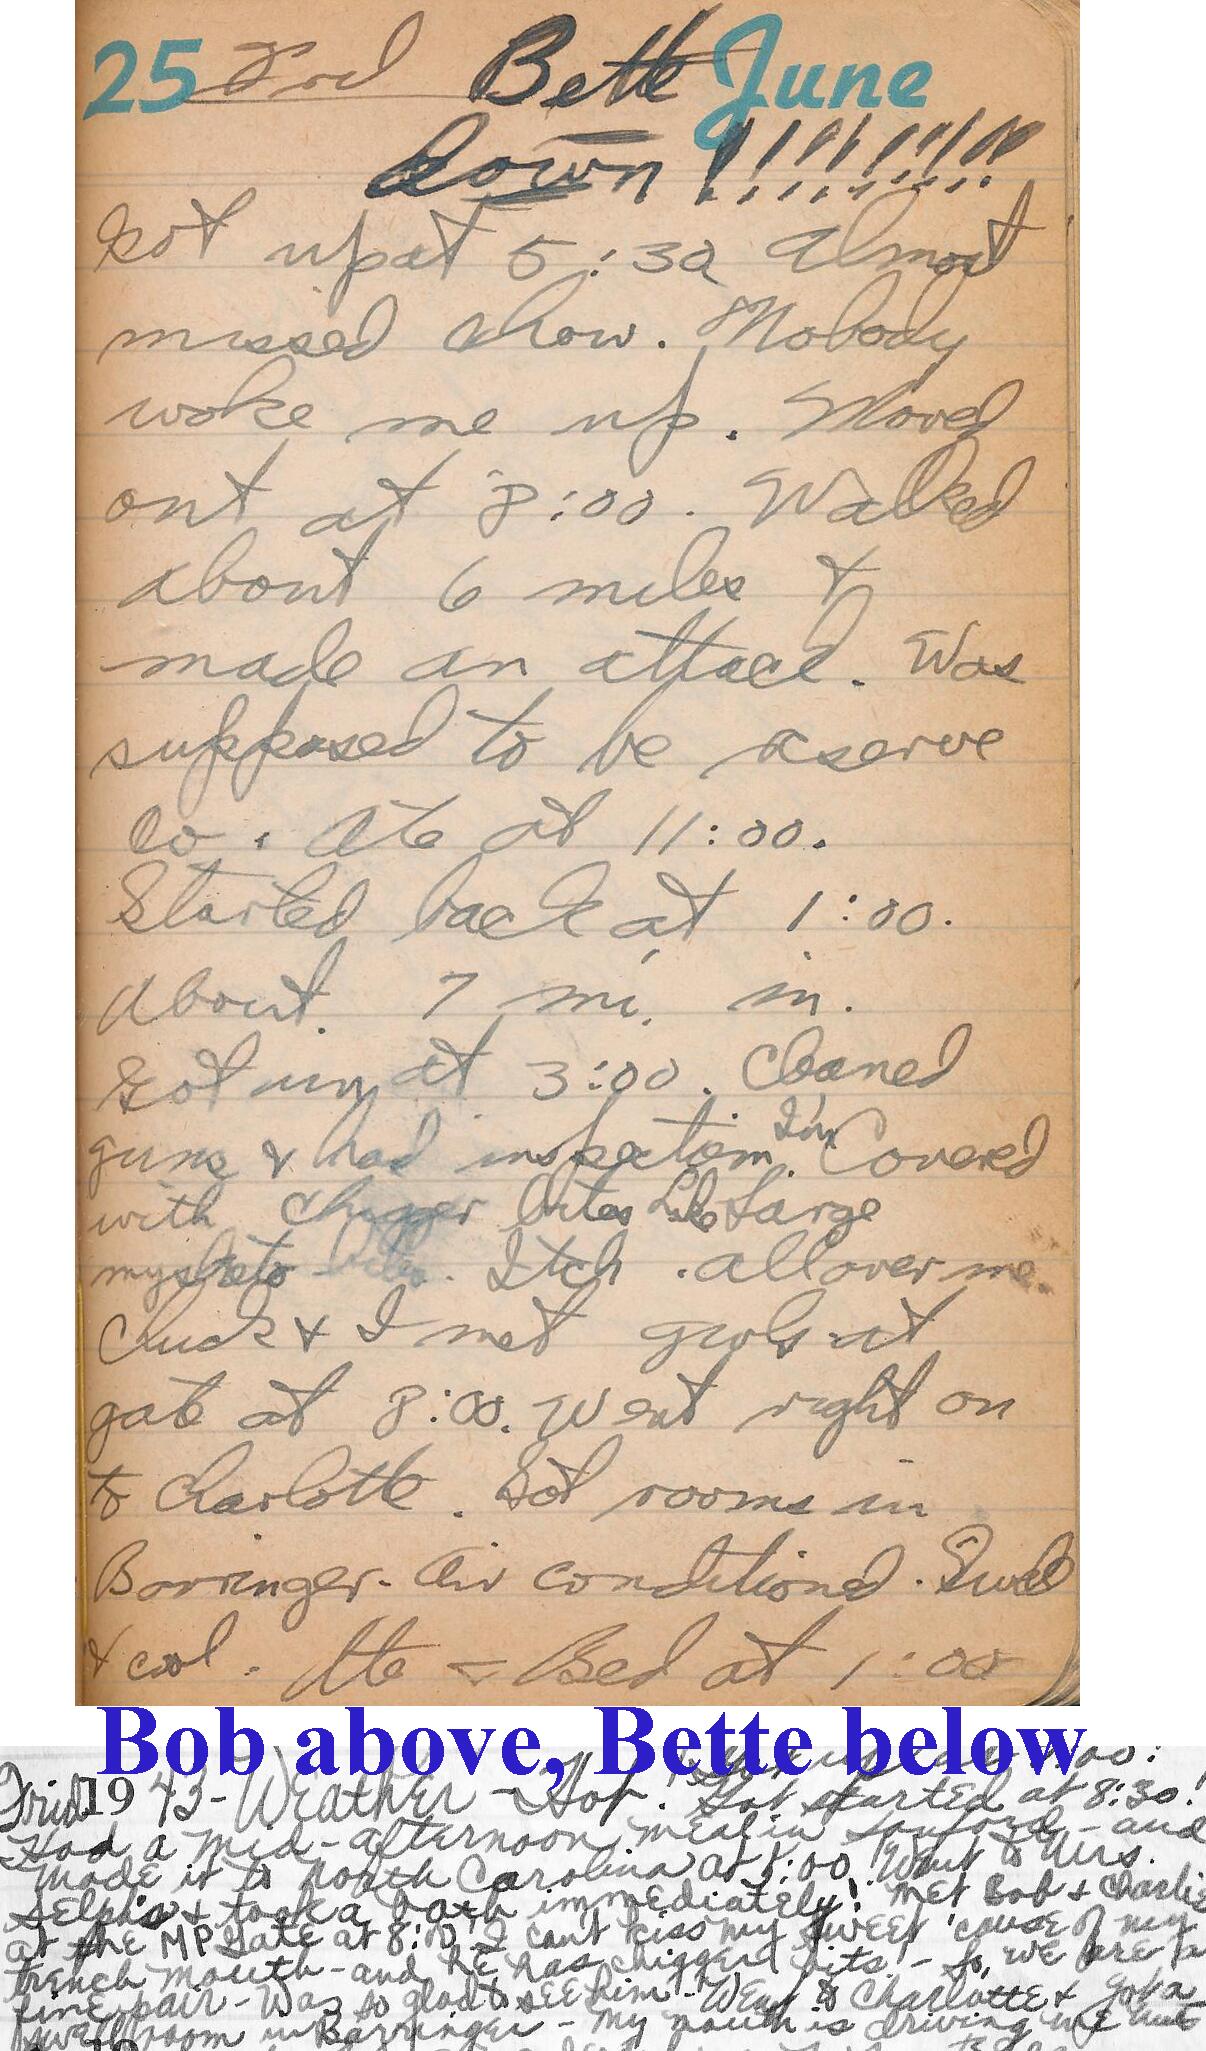 25 Frd Bette June
down !!!!!!!!!!
Got up at 5:30 Almost
missed chow. Nobody
woke me up. Moved
out at 8:00. Walked
about 6 miles &
made an attack. Was
supposed to be reserve
Co. Ate at 11:00.
Started back at 1:00.
About 7 mi. in.
Got in at 3:00. Cleaned
guns & had inspection. I'm Covered
with chigger bites Like Large
bites. Itch all over me.
Chuck & I met girls at
gate at 8:00. Went right on
to Charlotte. Got rooms in
Barringer. Air conditioned. Swell
& cool. Ate - Bed at 1:00
Bob above, Bette below
1943 - Weather - Hot! 
Got started at 8:30!
Had a mid-afternoon meal in Sanford - and
made it to North Carolina at Went to Mrs.
Selph's & took a bath immediately! Met Bob & Charlie
at the MP Gate at 8:00! I can't kiss my sweet 'cause of my
trench mouth - and he has chigger bits - So, we are a
fine pair - Was so glad to see him! Went to Charlotte & got a
swell room in Barringer - My mouth is driving me nuts
19